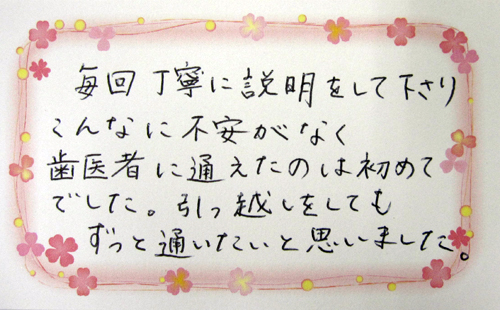 毎回丁寧に説明をして下さり
こんなに不安がなく
歯医者に通えたのは初めて
でした。引っ越しをしても
ずっと通いたいと思いました。